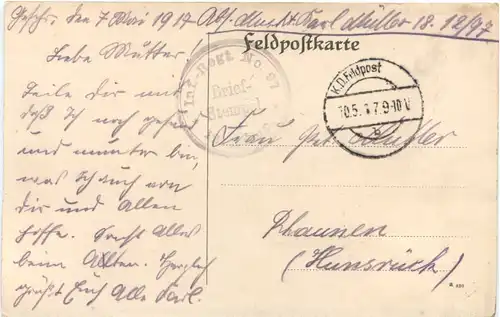 Geschr. den 7 Mai 1917 Abs. Musk. Karl Müller 18. 12/97
Feldpostkarte
Inf.-Regt. No 97
Brief-
Stempel
K.D. Feldpost
10.5.17.9-10V
b
Liebe Mutter!
Teile Dir mit
daß Ich noch gesund
und munter bin,
was Ich auch von
Dir und Allen
hoffe. Sonst Alles
beim Alten. Herzlich
grüßt Euch Alle Karl.
Frau Müller
Rhaunen
(Hunsrück)